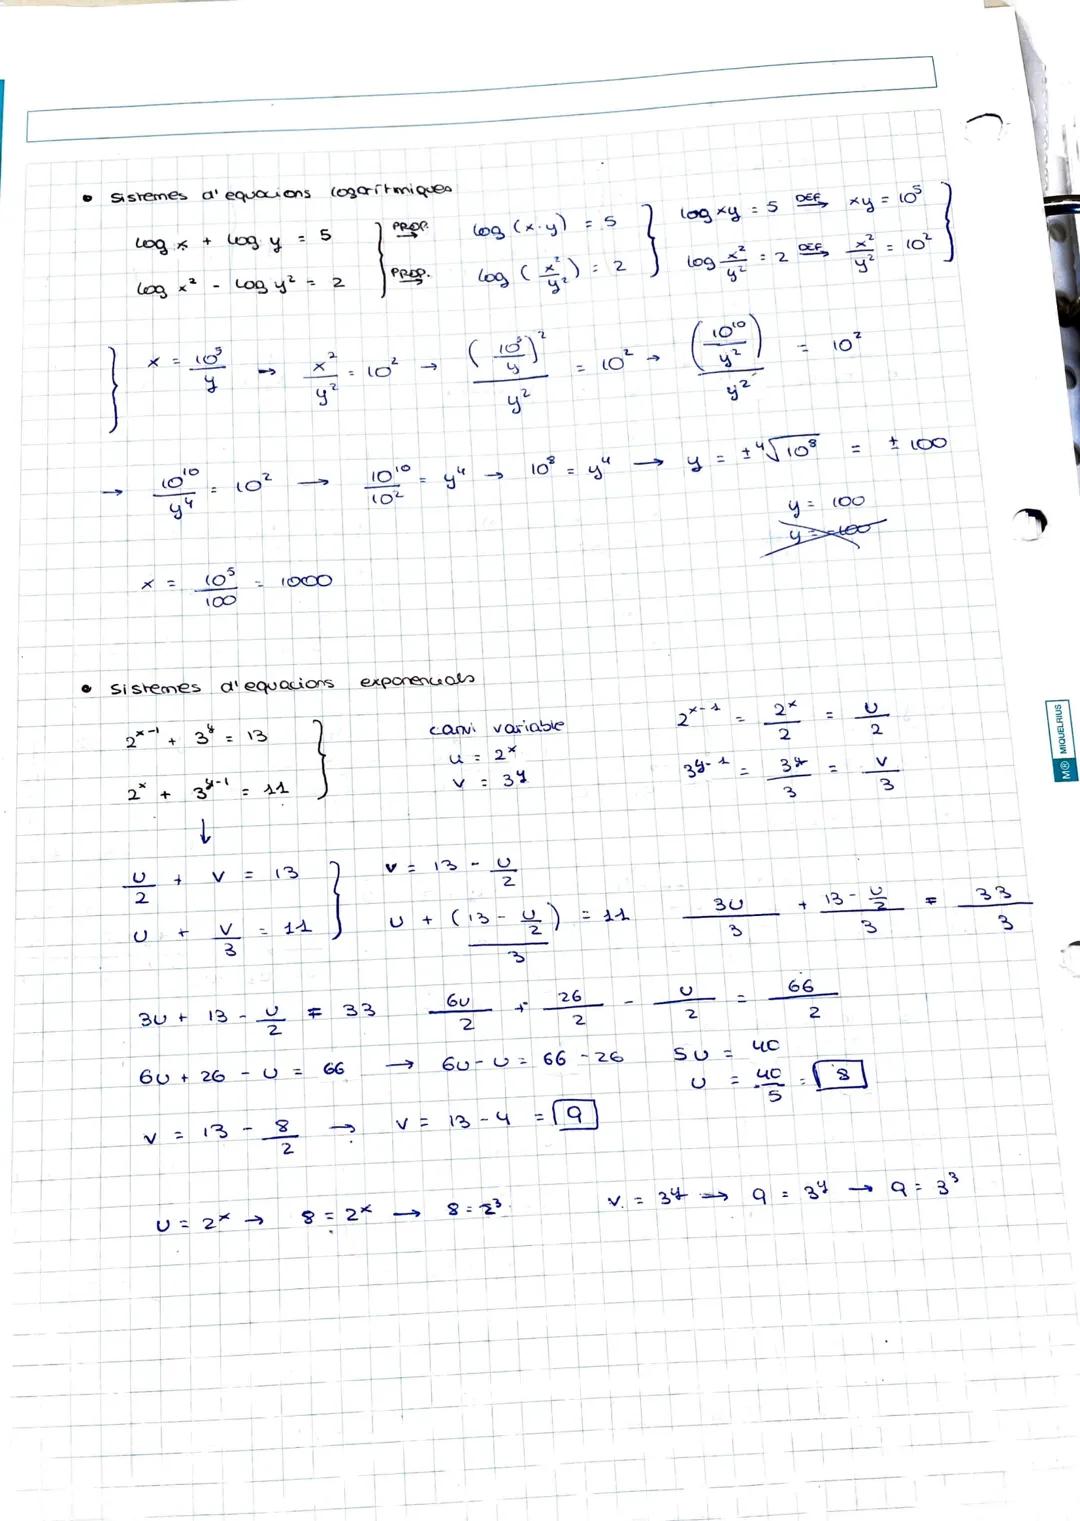 • sistemes d'equacions logarítmiques
log x + log y = 5 } PROP. → log (x·y) = 5 } log xy = 5 DEF → xy = 10^5 }
log x^2 - log y^2 = 2 } PROP. → log (x^2/y^2) = 2 } log x^2/y^2 = 2 DEF → x^2/y^2 = 10^2 }
} x = 10^5/y → x^2/y^2 = 10^2 → (10^5/y)^2/y^2 = 10^2 → (10^10/y^2)/y^2 = 10^2
→ 10^10/y^4 = 10^2 → 10^10/10^2 = y^4 → 10^8 = y^4 → y = ±⁴√10^8 = ±100
y = 100
y = -100
x = 10^5/100 = 1000
• sistemes d'equacions exponencials
2^(x-1) + 3^y = 13 }
2^x + 3^(y-1) = 11 }
↓
canvi variable
u = 2^x
v = 3^y
2^(x-1) = 2^x/2 = u/2
3^(y-1) = 3^y/3 = v/3
u/2 + v = 13 } v = 13 - u/2
u + v/3 = 11 } u + (13 - u/2)/3 = 11 3u/3 + (13 - u/2)/3 = 33/3
3u + 13 - u/2 = 33 6u/2 + 26/2 - u/2 = 66/2
6u + 26 - u = 66 → 6u - u = 66 - 26 5u = 40
u = 40/5 = 8
v = 13 - 8/2 → v = 13 - 4 = 9
u = 2^x → 8 = 2^x → 8 = 2^3. v = 3^y → 9 = 3^y → 9 = 3^3
M® MIQUELRIUS